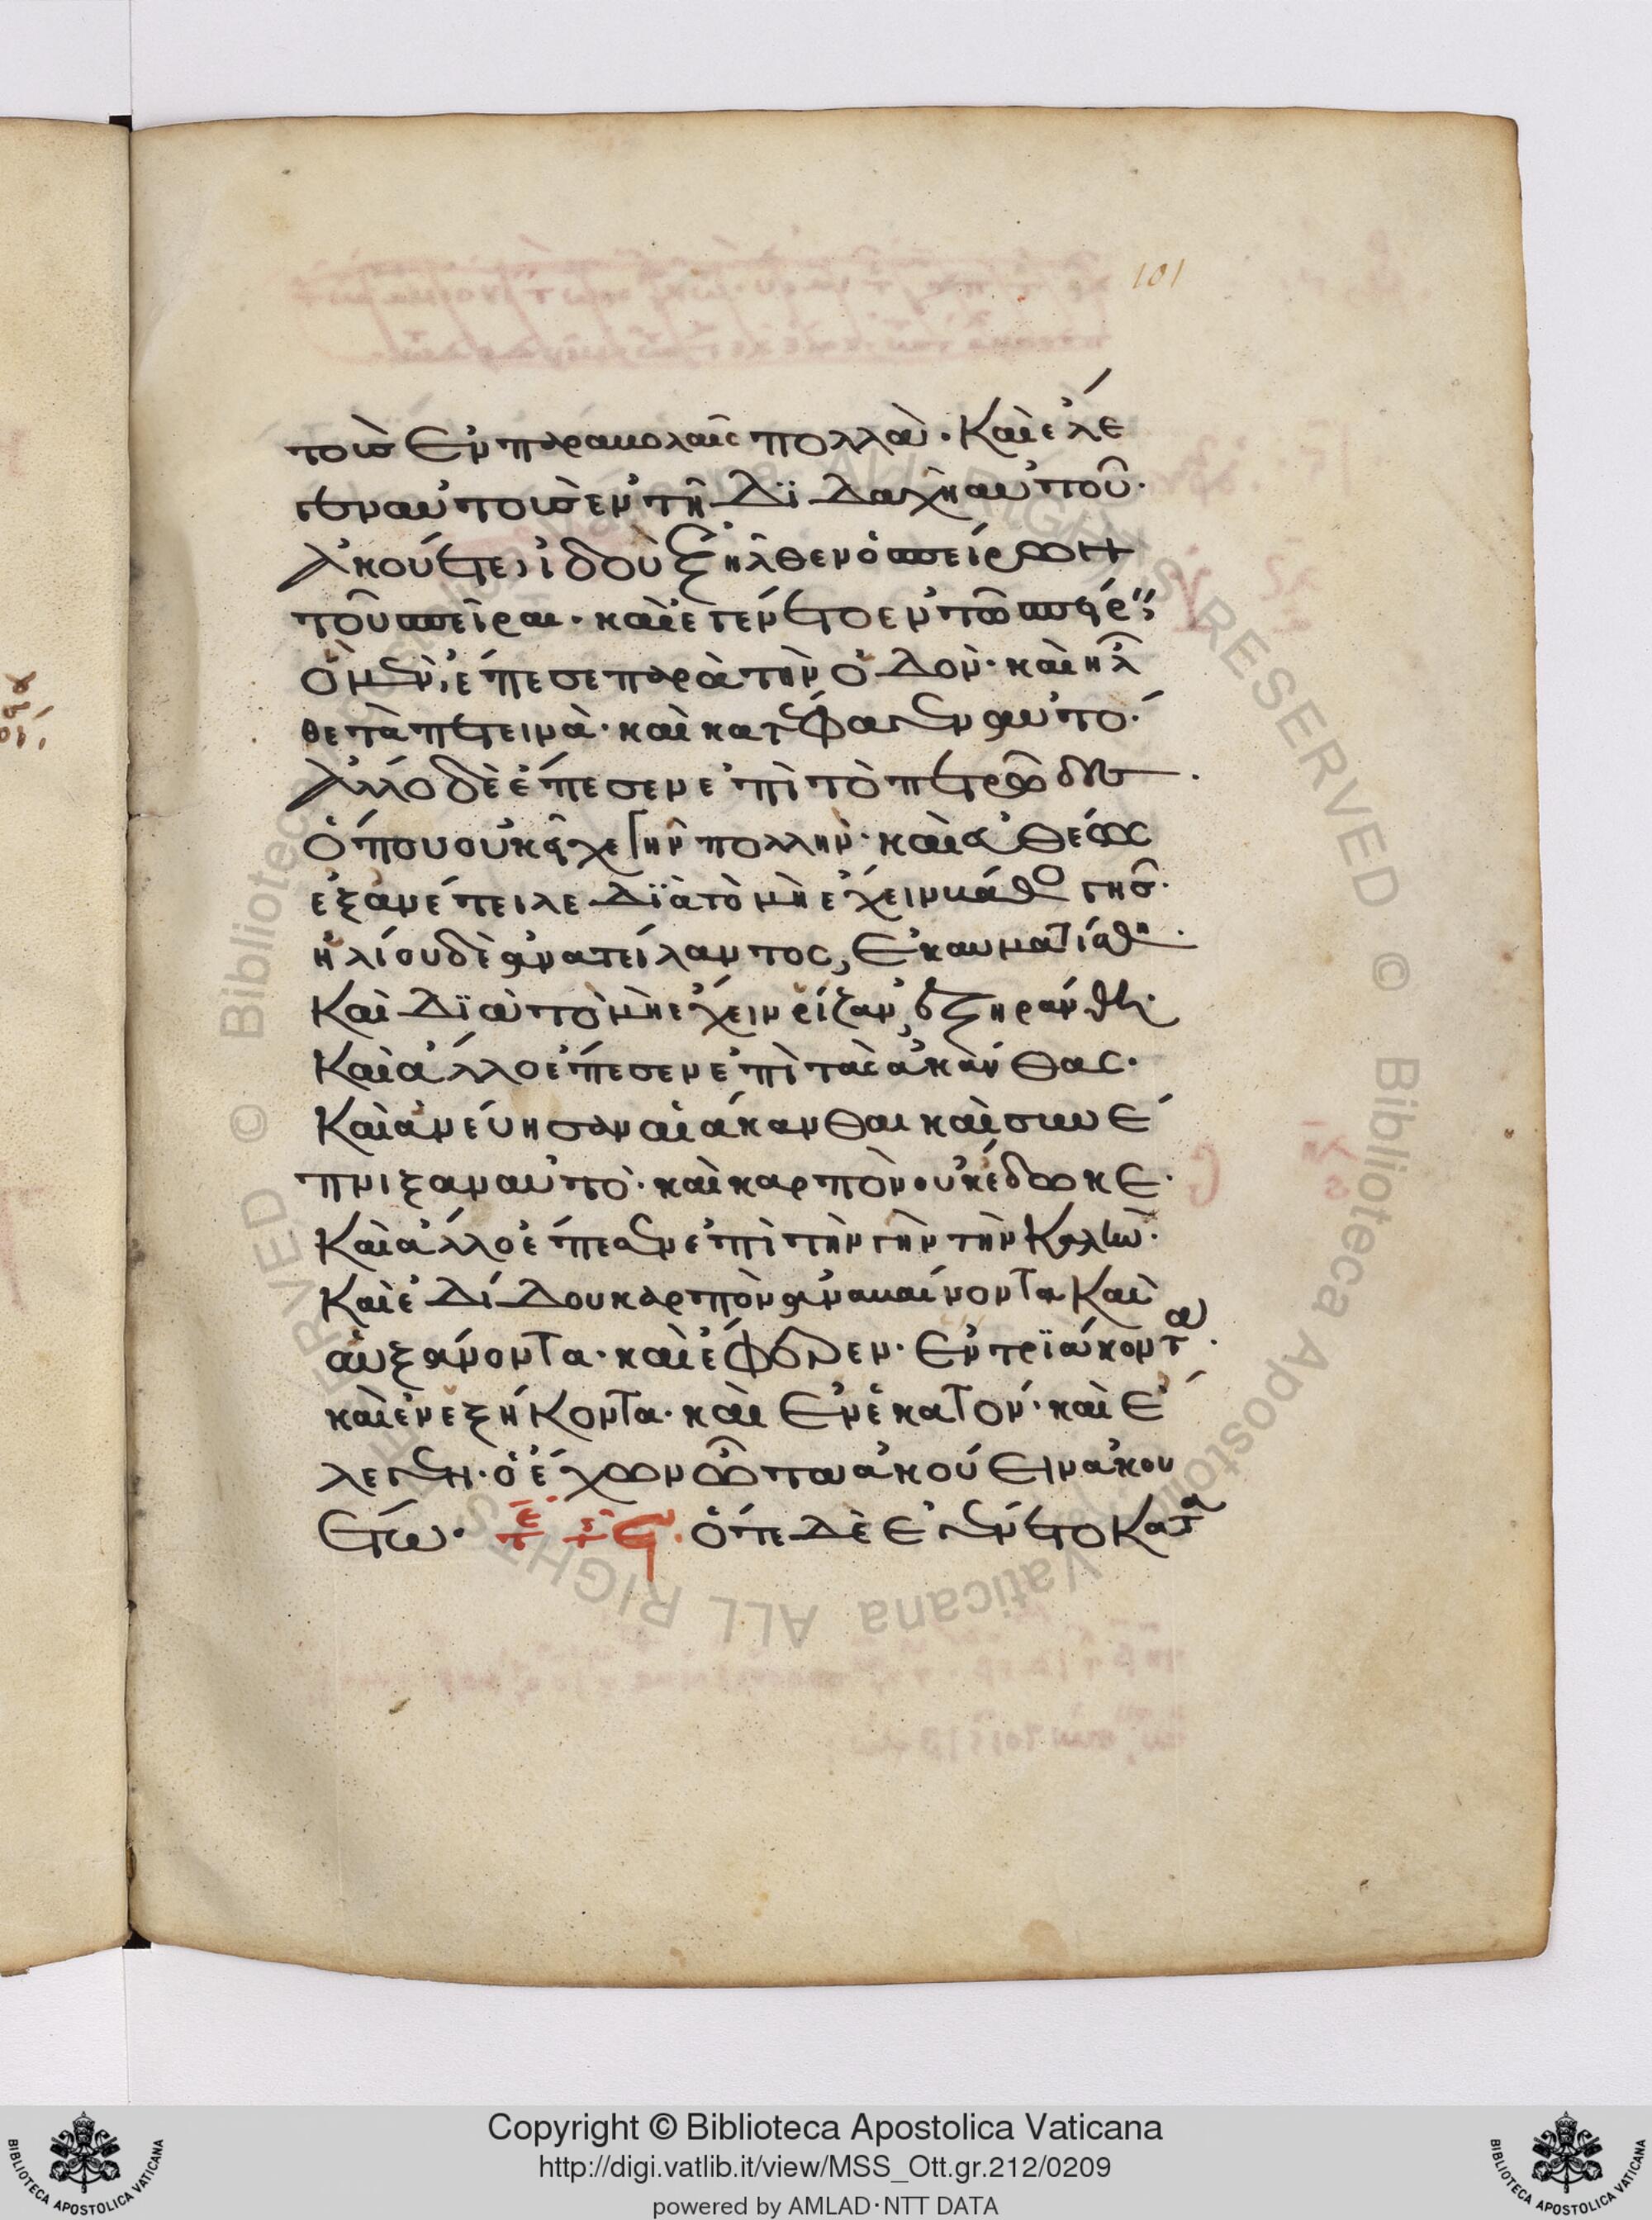 101
τοῖς ἐν παραβολαῖς πολλά· Καὶ ἔλε
γεν αὐτοῖς ἐν τῇ διδαχῇ αὐτοῦ·
Ἀκούετε, ἰδοὺ ἐξῆλθεν ὁ σπείρων
τοῦ σπεῖραι· καὶ ἐγένετο ἐν τῷ σπείρειν
ὁ μὲν, ἔπεσε παρὰ τὴν ὁδόν· καὶ ἦλ
θε τὰ πετεινά· καὶ κατέφαγεν αὐτό·
Ἄλλο δὲ ἔπεσεν ἐπὶ τὸ πετρῶδες·
ὅπου οὐκ εἶχε γῆν πολλήν· καὶ εὐθέως
ἐξανέτειλε διὰ τὸ μὴ ἔχειν βάθος γῆς·
ἡλίου δὲ ἀνατείλαντος, ἐκαυματίσθη·
Καὶ διὰ τὸ μὴ ἔχειν ῥίζαν, ἐξηράνθη·
Καὶ ἄλλο ἔπεσεν ἐπὶ τὰς ἀκάνθας·
Καὶ ἀνέβησαν αἱ ἄκανθαι καὶ συνέ
πνιξαν αὐτό· καὶ καρπὸν οὐκ ἔδωκε·
Καὶ ἄλλο ἔπεσεν ἐπὶ τὴν γῆν τὴν Καλήν·
Καὶ ἐδίδου καρπὸν ἀναβαίνοντα Καὶ
αὐξάνοντα· καὶ ἔφερεν· ἐν τριάκοντα·
καὶ ἐν ἑξήκοντα· καὶ ἐν ἑκατόν· καὶ ἔ
λεγεν· ὁ ἔχων ὦτα ἀκούειν ἀκου
έτω· ὅτε δὲ ἐγένετο Κατα
Copyright © Biblioteca Apostolica Vaticana
http://digi.vatlib.it/view/MSS_Ott.gr.212/0209
powered by AMLAD·NTT DATA